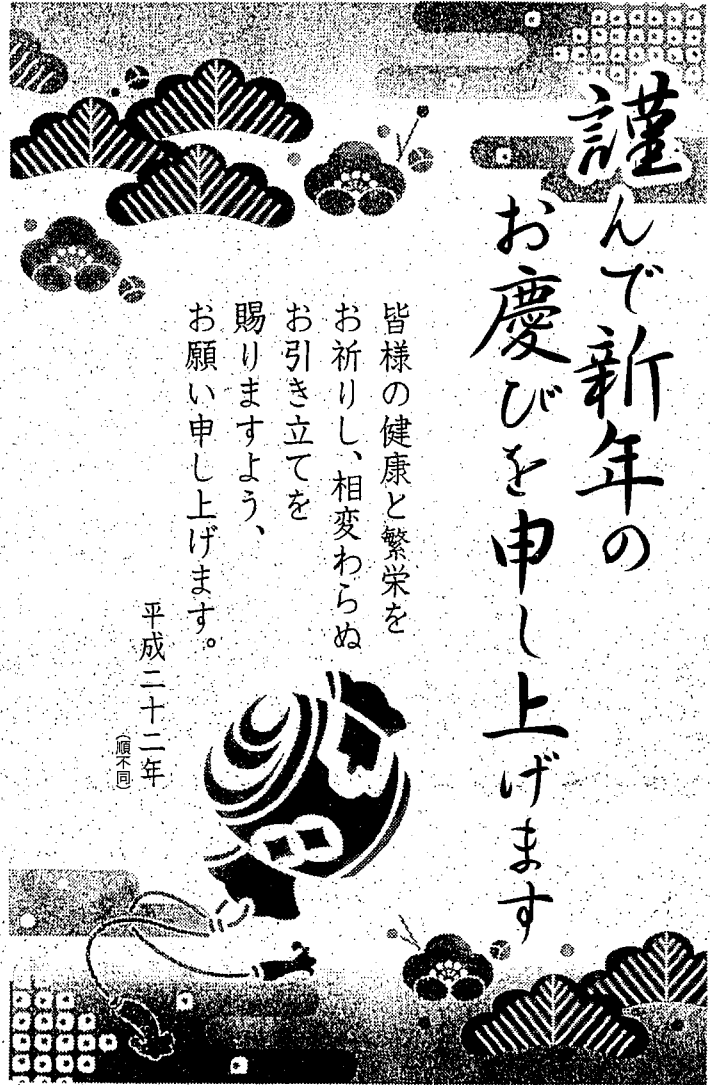 謹んで新年の
お慶びを申し上げます
皆様の健康と繁栄を
お祈りし、相変わらぬ
お引き立てを
賜りますよう、
お願い申し上げます。
平成二十二年
(順不同)